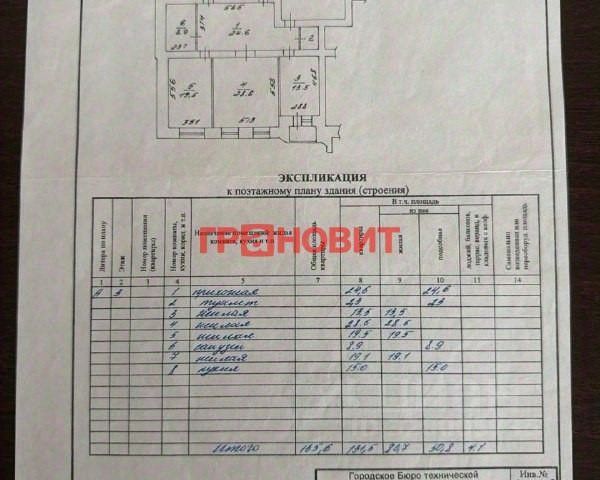 1
24,6
2
3
13.5
4
28.6
5
19,5
ЭКСПЛИКАЦИЯ
к поэтажному плану здания (строения)
Литера по плану
Этаж
Номер помещения (квартиры)
Номер комнаты, кухни, корид. и т.п.
Назначение помещений: жилая комната, кухня и т.п.
Общая площадь квартиры
В т.ч. площадь
квартиры
из нее
жилая
подсобная
лоджий, балконов, террас, веранд, и кладовых с коэф.
Самовольно возведенная или переоборуд. площадь
НОВИТ
1 2 3 4 5 6 7 8 9 10 11 12 14
А 3 1 прихожая 24,6 24,6
2 туалет 2,3 2,3
3 жилая 13,5 13,5
4 жилая 28.6 28.6
5 жилая 19.5 19.5
6 санузел 8,9 8,9
7 жилая 19,1 19,1
8 кухня 15.0 15.0
Итого 131,5 80,7 50,8 4.1
Городское Бюро технической
Инв.№